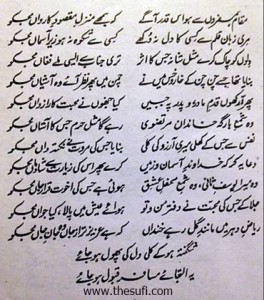 مقام ہم سفروں سے ہوا اس قدر آگے کہ سمجھے منزل مقصود کارواں مجھکو
مری زبان قلم سے کسی کا دل نہ دکھے کسی سے شکوہ نہ ہو زیر آسماں مجھکو
دلوں کو چاک کرے مثل شانہ جس کا اثر تری جناب سے ایسی ملے فغاں مجھکو
بنایا تھا جسے چن چن کے خار و خس میں نے چمن میں پھر نظر آئے وہ آشیاں مجھکو
پھر آ رکھوں قدم مادر و پدر پہ جبیں کیا جنھوں نے محبت کا رازداں مجھکو
وہ شمع بارگہ خاندان مرتضوی رہے گا مثل حرم جس کا آستاں مجھکو
نفس سے جس کے کھلی میری آرزو کی کلی بنایا جس کی مروت نے نکتہ داں مجھکو
دعا یہ کر کہ خداوند آسمان و زمیں کرے پھر اس کی زیارت سے شادماں مجھکو
وہ میرا یوسف ثانی، وہ شمع محفل عشق ہوئی ہے جس کی اخوت قرار جاں مجھکو
جلا کے جس کی محبت نے دفتر من و تو ہوائے عیش میں پالا، کیا جواں مجھکو
ریاض دہر میں مانند گل رہے خنداں کہ ہے عزیز تر از جاں وہ جان جاں مجھکو
شگفتہ ہو کے کلی دل کی پھول ہو جائے
یہ التجائے مسافر قبول ہو جائے
www.thesufi.com